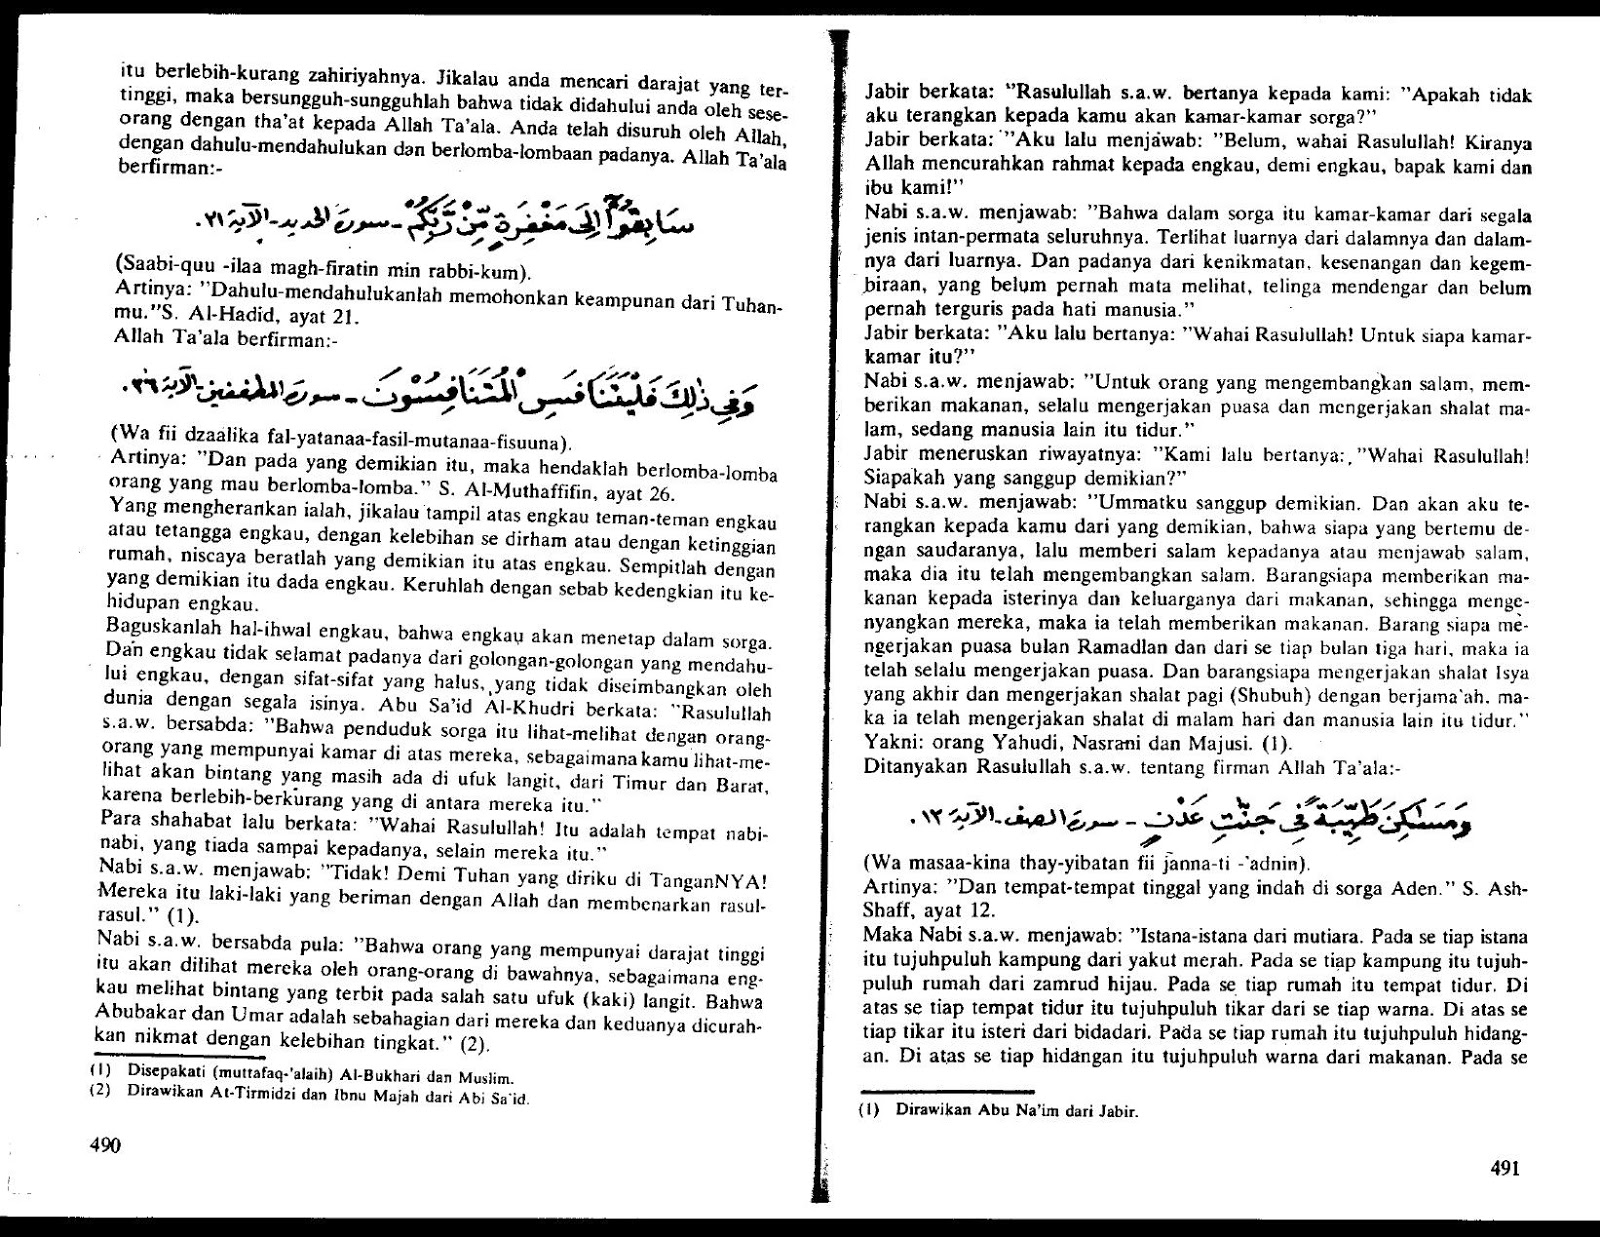 itu berlebih-kurang zahiriyahnya. Jikalau anda mencari darajat yang ter-
tinggi, maka bersungguh-sungguhlah bahwa tidak didahului anda oleh sese-
orang dengan tha'at kepada Allah Ta'ala. Anda telah disuruh oleh Allah,
dengan dahulu-mendahulukan dan berlomba-lombaan padanya. Allah Ta'ala
berfirman:-
سَابِقُوْٓا اِلٰى مَغْفِرَةٍ مِّنْ رَّبِّكُمْ - سورة الحديد - الآية ٢١.
(Saabi-quu -ilaa magh-firatin min rabbi-kum).
Artinya: "Dahulu-mendahulukanlah memohonkan keampunan dari Tuhan-
mu."S. Al-Hadid, ayat 21.
Allah Ta'ala berfirman:-
وَفِي ذٰلِكَ فَلْيَتَنَافَسِ الْمُتَنَافِسُوْنَ - سورة المطففين - الآية ٢٦.
(Wa fii dzaalika fal-yatanaa-fasil-mutanaa-fisuuna).
Artinya: "Dan pada yang demikian itu, maka hendaklah berlomba-lomba
orang yang mau berlomba-lomba." S. Al-Muthaffifin, ayat 26.
Yang mengherankan ialah, jikalau tampil atas engkau teman-teman engkau
atau tetangga engkau, dengan kelebihan se dirham atau dengan ketinggian
rumah, niscaya beratlah yang demikian itu atas engkau. Sempitlah dengan
yang demikian itu dada engkau. Keruhlah dengan sebab kedengkian itu ke-
hidupan engkau.
Baguskanlah hal-ihwal engkau, bahwa engkau akan menetap dalam sorga.
Dan engkau tidak selamat padanya dari golongan-golongan yang mendahu-
lui engkau, dengan sifat-sifat yang halus, yang tidak diseimbangkan oleh
dunia dengan segala isinya. Abu Sa'id Al-Khudri berkata: "Rasulullah
s.a.w. bersabda: "Bahwa penduduk sorga itu lihat-melihat dengan orang-
orang yang mempunyai kamar di atas mereka, sebagaimana kamu lihat-me-
lihat akan bintang yang masih ada di ufuk langit, dari Timur dan Barat,
karena berlebih-berkurang yang di antara mereka itu."
Para shahabat lalu berkata: "Wahai Rasulullah! Itu adalah tempat nabi-
nabi, yang tiada sampai kepadanya, selain mereka itu."
Nabi s.a.w. menjawab: "Tidak! Demi Tuhan yang diriku di TanganNYA!
Mereka itu laki-laki yang beriman dengan Allah dan membenarkan rasul-
rasul." (1).
Nabi s.a.w. bersabda pula: "Bahwa orang yang mempunyai darajat tinggi
itu akan dilihat mereka oleh orang-orang di bawahnya, sebagaimana eng-
kau melihat bintang yang terbit pada salah satu ufuk (kaki) langit. Bahwa
Abubakar dan Umar adalah sebahagian dari mereka dan keduanya dicurah-
kan nikmat dengan kelebihan tingkat." (2).
(1) Disepakati (muttafaq-'alaih) Al-Bukhari dan Muslim.
(2) Dirawikan At-Tirmidzi dan Ibnu Majah dari Abi Sa'id.
490
Jabir berkata: "Rasulullah s.a.w. bertanya kepada kami: "Apakah tidak
aku terangkan kepada kamu akan kamar-kamar sorga?"
Jabir berkata: "Aku lalu menjawab: "Belum, wahai Rasulullah! Kiranya
Allah mencurahkan rahmat kepada engkau, demi engkau, bapak kami dan
ibu kami!"
Nabi s.a.w. menjawab: "Bahwa dalam sorga itu kamar-kamar dari segala
jenis intan-permata seluruhnya. Terlihat luarnya dari dalamnya dan dalam-
nya dari luarnya. Dan padanya dari kenikmatan, kesenangan dan kegem-
biraan, yang belum pernah mata melihat, telinga mendengar dan belum
pernah terguris pada hati manusia."
Jabir berkata: "Aku lalu bertanya: "Wahai Rasulullah! Untuk siapa kamar-
kamar itu?"
Nabi s.a.w. menjawab: "Untuk orang yang mengembangkan salam, mem-
berikan makanan, selalu mengerjakan puasa dan mengerjakan shalat ma-
lam, sedang manusia lain itu tidur."
Jabir meneruskan riwayatnya: "Kami lalu bertanya: "Wahai Rasulullah!
Siapakah yang sanggup demikian?"
Nabi s.a.w. menjawab: "Ummatku sanggup demikian. Dan akan aku te-
rangkan kepada kamu dari yang demikian, bahwa siapa yang bertemu de-
ngan saudaranya, lalu memberi salam kepadanya atau menjawab salam,
maka dia itu telah mengembangkan salam. Barangsiapa memberikan ma-
kanan kepada isterinya dan keluarganya dari makanan, sehingga menge-
nyangkan mereka, maka ia telah memberikan makanan. Barang siapa me-
ngerjakan puasa bulan Ramadlan dan dari se tiap bulan tiga hari, maka ia
telah selalu mengerjakan puasa. Dan barangsiapa mengerjakan shalat Isya
yang akhir dan mengerjakan shalat pagi (Shubuh) dengan berjama'ah, ma-
ka ia telah mengerjakan shalat di malam hari dan manusia lain itu tidur."
Yakni: orang Yahudi, Nasrani dan Majusi. (1).
Ditanyakan Rasulullah s.a.w. tentang firman Allah Ta'ala:-
وَمَسٰكِنَ طَيِّبَةً فِي جَنّٰتِ عَدْنٍ - سورة الصف - الآية ١٢.
(Wa masaa-kina thay-yibatan fii janna-ti -'adnin).
Artinya: "Dan tempat-tempat tinggal yang indah di sorga Aden." S. Ash-
Shaff, ayat 12.
Maka Nabi s.a.w. menjawab: "Istana-istana dari mutiara. Pada se tiap istana
itu tujuhpuluh kampung dari yakut merah. Pada se tiap kampung itu tujuh-
puluh rumah dari zamrud hijau. Pada se tiap rumah itu tempat tidur. Di
atas se tiap tempat tidur itu tujuhpuluh tikar dari se tiap warna. Di atas se
tiap tikar itu isteri dari bidadari. Pada se tiap rumah itu tujuhpuluh hidang-
an. Di atas se tiap hidangan itu tujuhpuluh warna dari makanan. Pada se
(1) Dirawikan Abu Na'im dari Jabir.
491